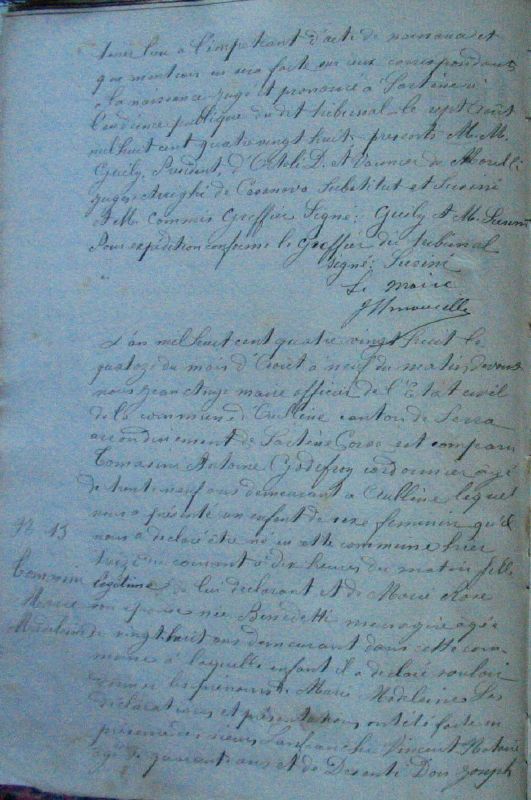 tenir lieu à l'impétrant d'acte de naissance et
que mention en sera faite aux
à la naissance jugé et prononcé à Sartène en
l'audience publique du dit tribunal le sept Août
mil huit cent quatre vingt huit présents M. M.
Président, d'
juges Arrighi de Casanova Substitut et Susini
A M. Commis Greffier Signé: A M. Susini
Pour expédition conforme le Greffier du tribunal
Signé: Susini
Le Maire
L'an mil huit cent quatre vingt huit le
quatorze du mois d'Août à neuf du matin devant
nous Jean Ange maire officier de l'Etat civil
de la commune d'Aullène canton de Serra
arrondissement de Sartène Corse est comparu
Tomasini Antoine Godefroy cordonnier âgé
de trente neuf ans demeurant à Aullène lequel
nous a présenté un enfant de sexe féminin qu'il
nous a déclaré être né en cette commune hier
treize du courant à dix heures du matin fille
légitime de lui déclarant et de Marie Rose
son épouse née Benedetti ménagère âgée
de vingt huit ans demeurant dans cette com
mune à laquelle enfant il a déclaré vouloir
donner les prénoms de Marie Madeleine Les
déclarations et présentations ont été faite en
présence des sieurs Lanfranchi Vincent Notaire
âgé de quarante ans et de Desanti Don Joseph
N° 13
Tomasini
Marie
Madeleine